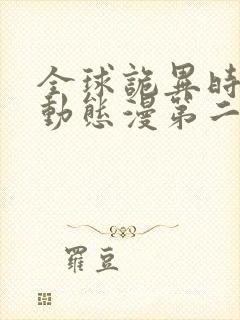 全球詭異時
動態漫第二
羅豆